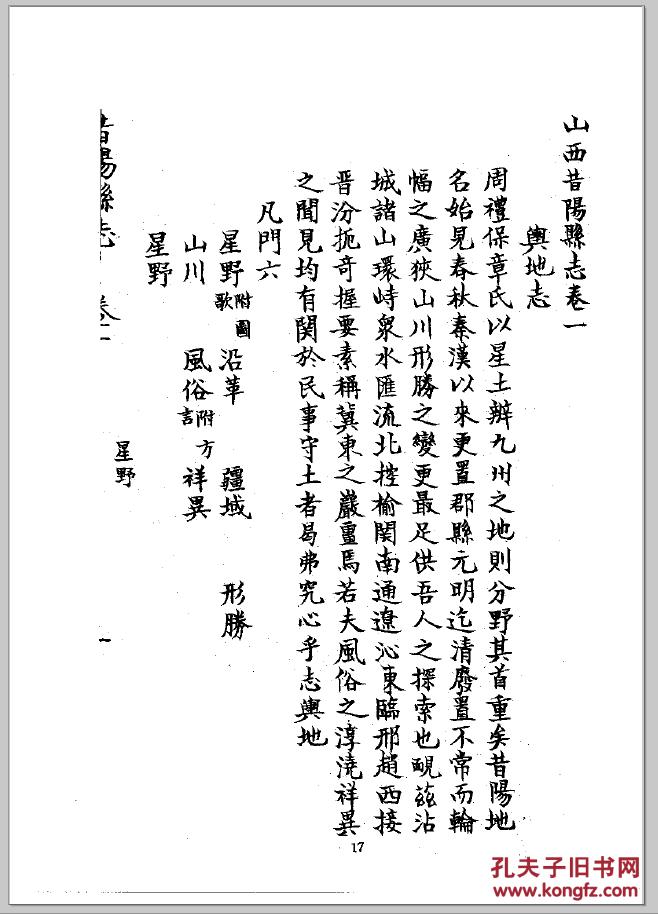 山西昔陽縣志卷一
輿地志
周禮保章氏以星土辨九州之地則分野其首重矣昔陽地
名始見春秋秦漢以來更置郡縣元明迄清廢置不常而輪
幅之廣狹山川形勝之變更最足供吾人之探索也覩茲沾
城諸山環峙衆水匯流北控榆関南通遼沁東臨邢趙西接
晋汾扼奇握要素稱冀東之巖畺焉若夫風俗之淳澆祥異
之聞見均有関於民事守土者曷弗究心乎志輿地
凡門六
星野附圖歌 沿革 疆域 形勝
山川 風俗附方言 祥異
星野
星野
昔陽縣志 卷一
一
17
孔夫子旧书网
www.kongfz.com